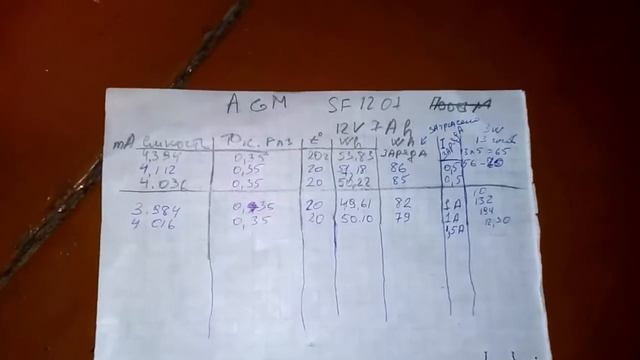 AGM SF 1207
12V 7Ah
mA емкость Ток. Раз t° Wh Wh к ЗАРЯДА I ЗАРЯДА 3W
4,394 0,35 20 53,83 13x5=65
4,112 0,35 20 51,18 86 0,5
4.036 0.35 20 50,22 85 0,5
3.984 0,35 20 49,61 82 1A 132
4.016 0,35 20 50.10 79 1A 194
1,5A 12,30